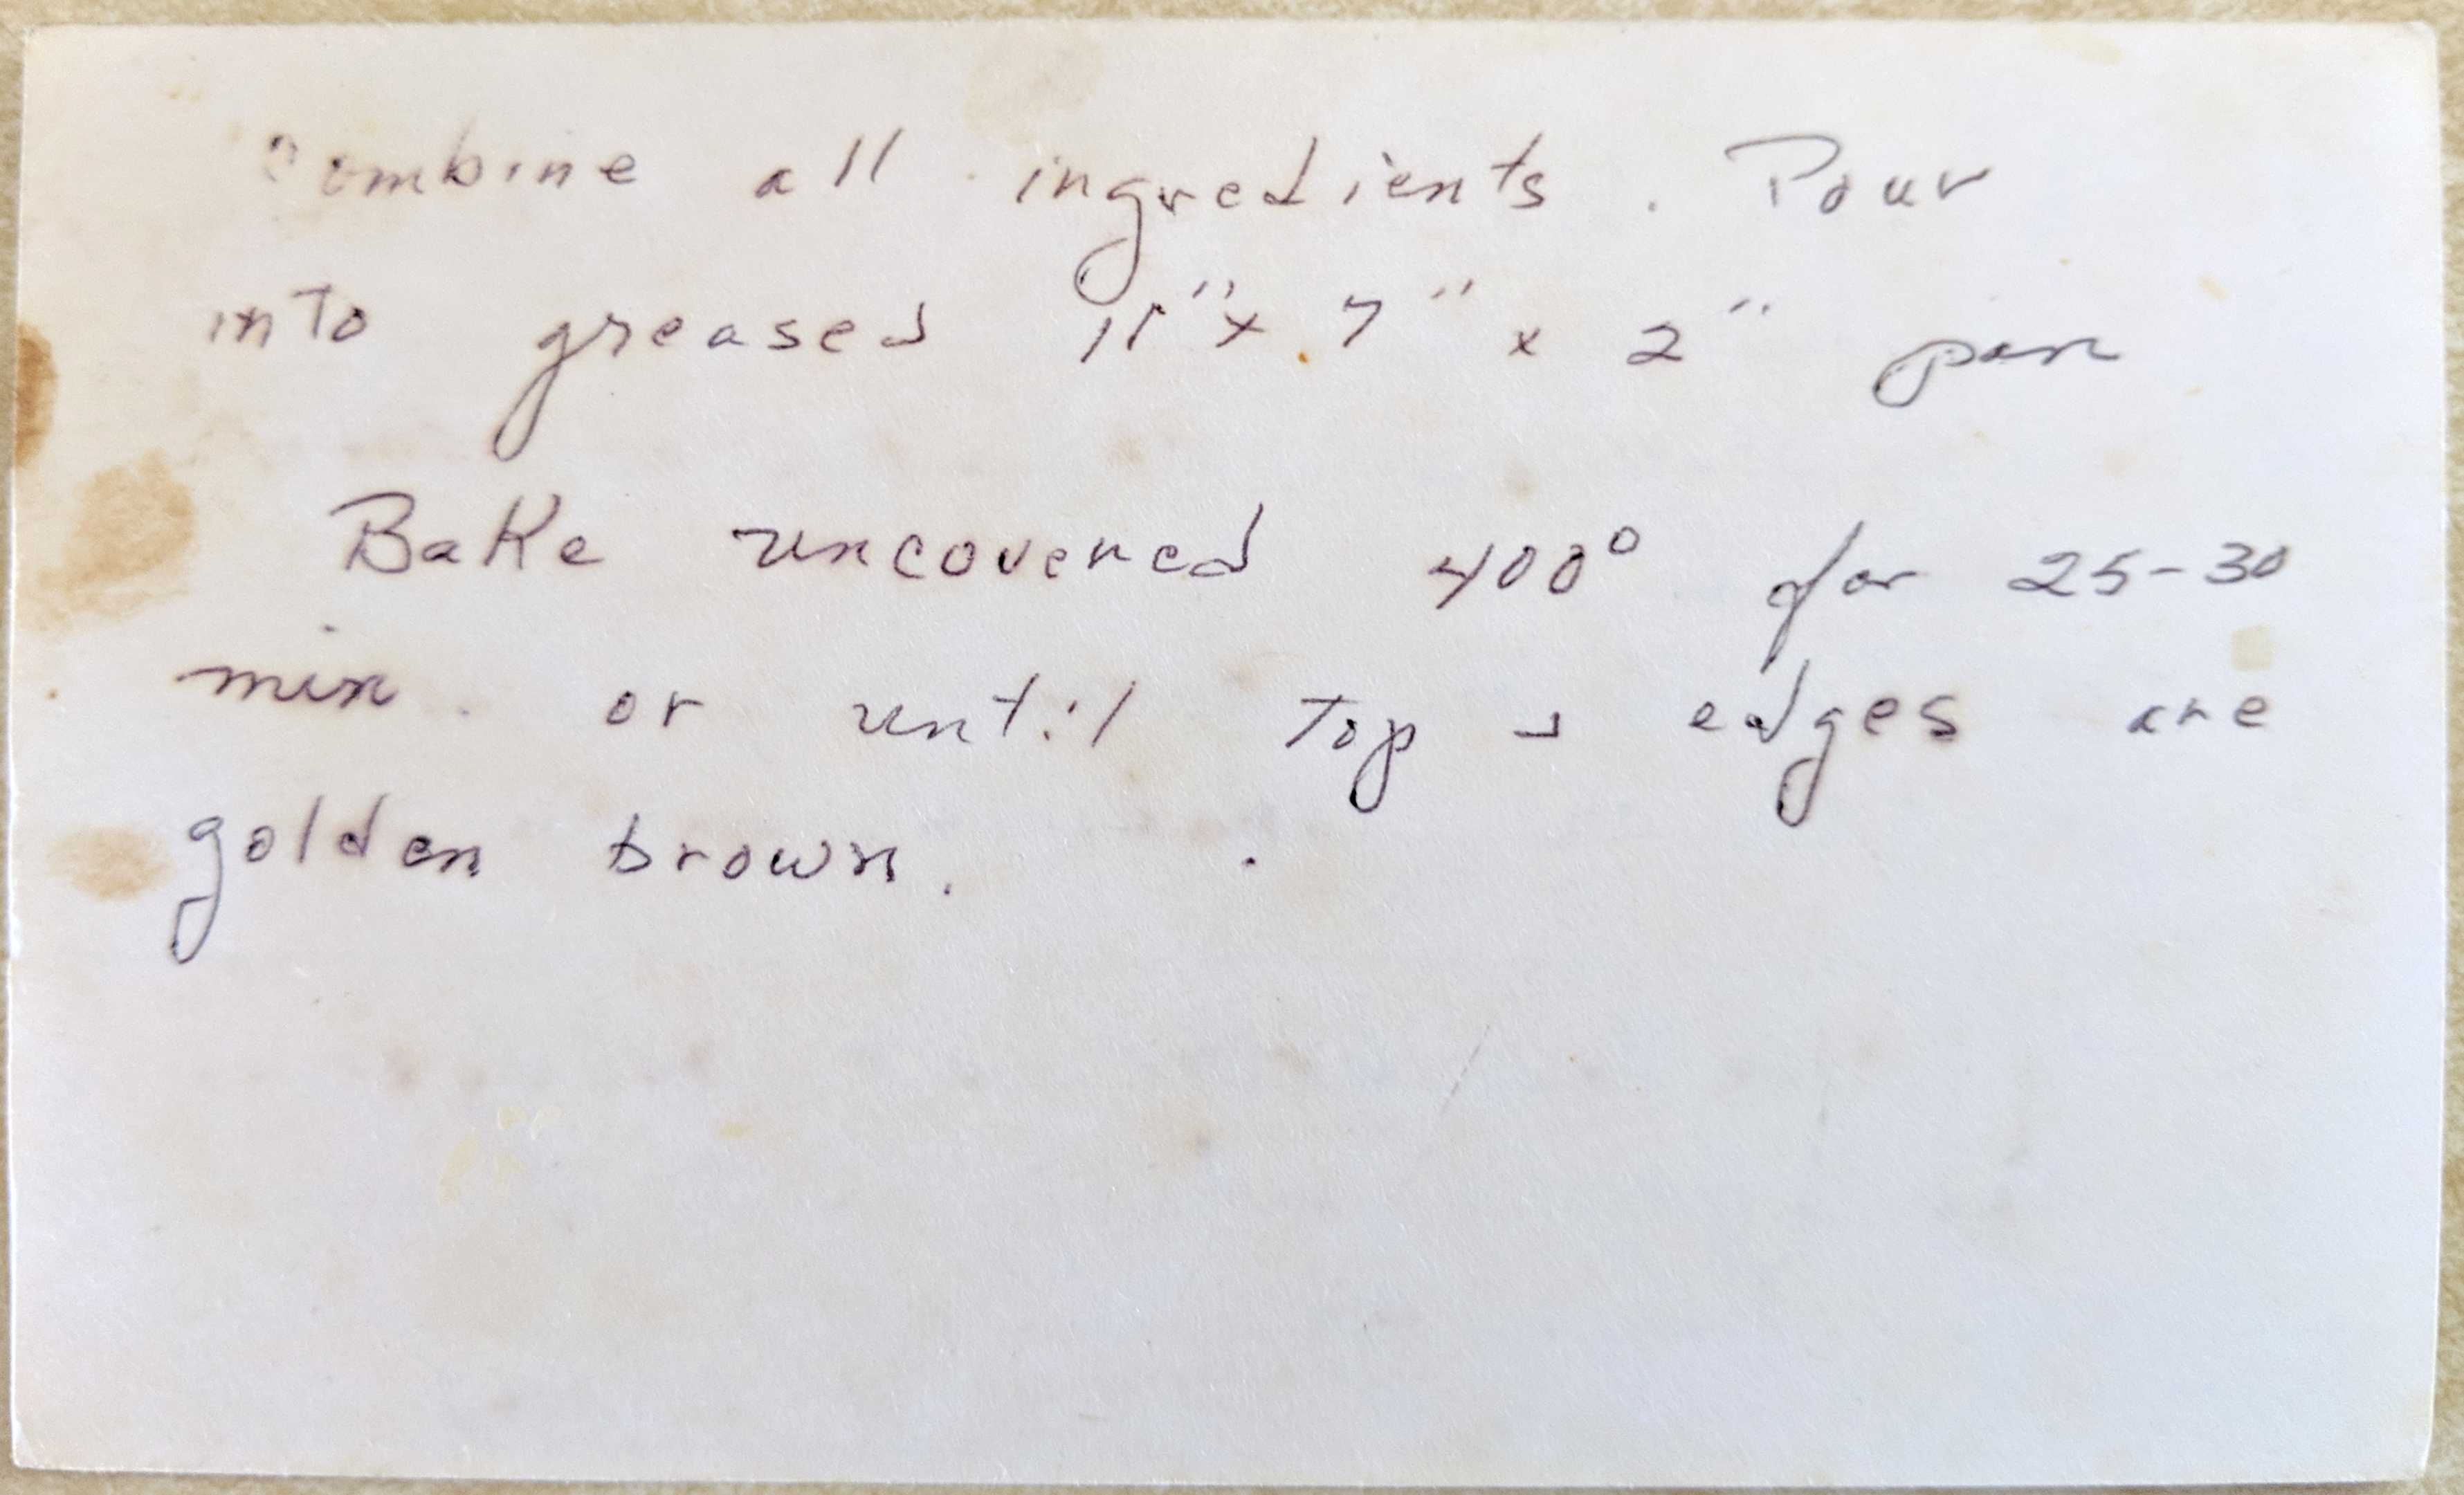 Combine all ingredients. Pour
into greased 11" x 7" x 2" pan
Bake uncovered 400° for 25-30
min. or until top + edges are
golden brown.